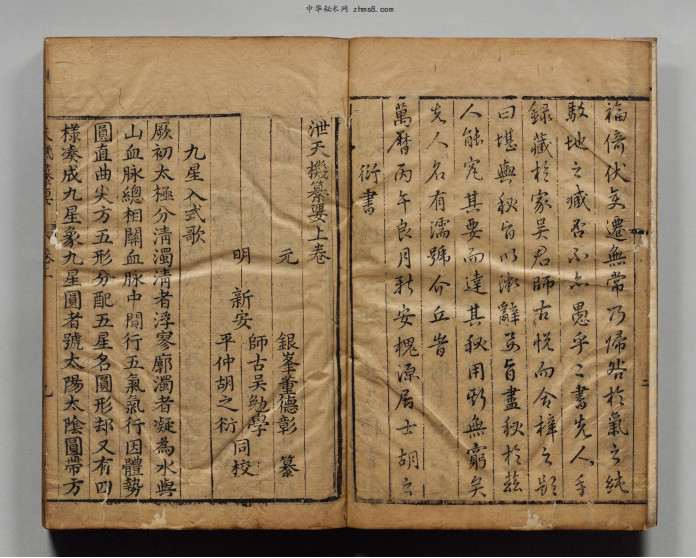 中华秘术网 zhms8.com
福倚伏矣遷無常乃歸咎於氣之純
駁地之臧否不亦愚乎二書先人手
錄藏於家吳君師古悅而命梓之顏
曰堪輿秘旨以漸辭旨盡秘於茲
人能究其要而達其秘用斯無窮矣
先人名有濡號介丘者
萬曆丙午良月新安槐源居士胡之
衍書
二
泄天機纂要上卷
元 銀峯董德彰 纂
明 新安 師古吳勉學
平仲胡之衍 同校
九星入式歌
厥初太極分清濁清者浮寥廓濁者凝為水與
山血脉總相關血脉中間行五氣氣行因體勢
圓直曲尖方五形分配五星名圓形却又有四
樣凑成九星象九星圓者號太陽太陰圓帶方